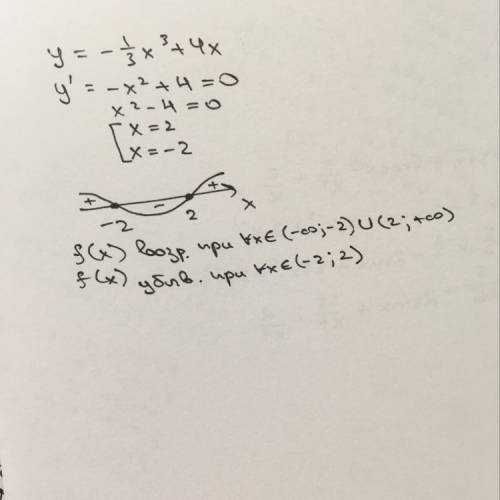 y = -1/3 x³ + 4x
y' = -x² + 4 = 0
x² - 4 = 0
[ x = 2
x = -2
+ - +
-2 2 x
f(x) возр. при ∀x∈(-∞;-2)∪(2;+∞)
f(x) убыв. при ∀x∈(-2;2)